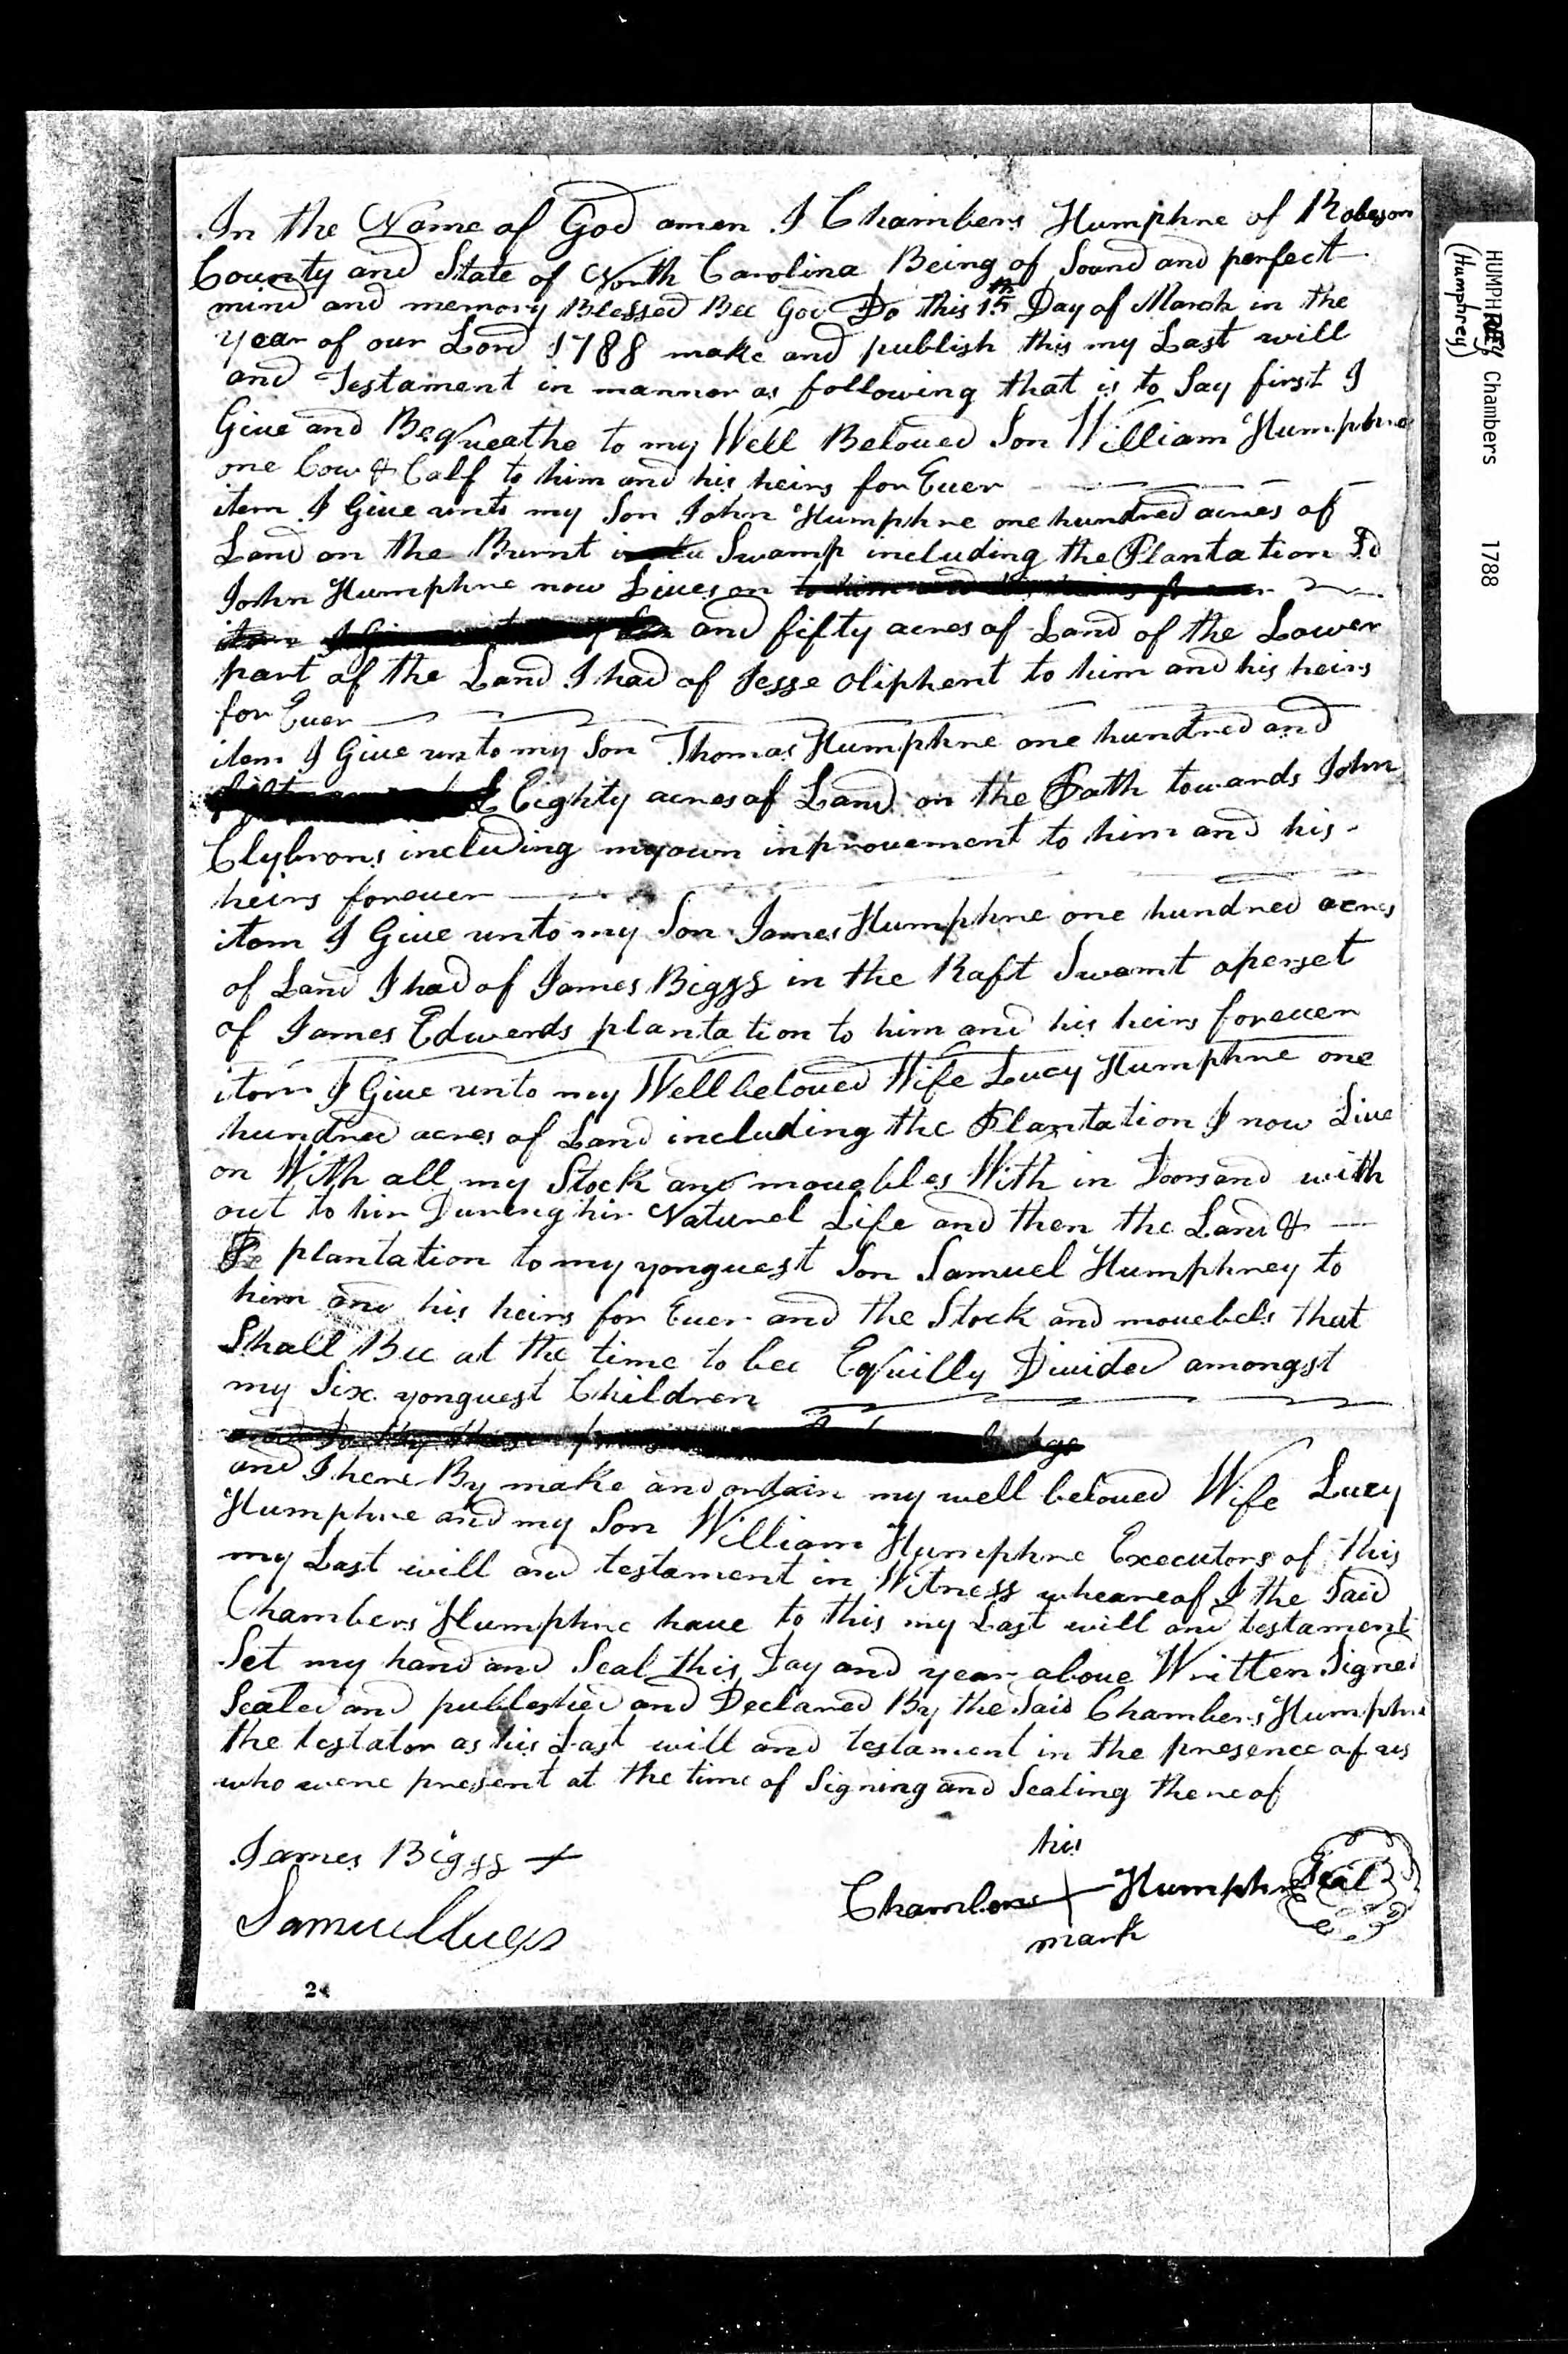 In the Name of God amen I Chambers Humphre of Robeson
County and State of North Carolina Being of Sound and perfect
mind and memory Blessed Bee God Do this 15th Day of March in the
year of our Lord 1788 make and publish this my Last will
and Testament in mannor as following that is to Say first I
Give and Bequeathe to my Well Beloved Son William Humphre
one Cow & Calf to him and his heirs for Ever
item I Give unto my Son John Humphre one hundred acres of
Land on the Burnt Swamp including the Plantation Sd
John Humphre now Lives on to him and his heirs for ever
item I Give unto my Son and fifty acres of Land of the Lower
part of the Land I had of Jesse Oliphent to him and his heirs
for Ever
item I Give unto my Son Thomas Humphre one hundred and
Eighty acres of Land on the Path towards John
Clybrons including my own inprovement to him and his
heirs forever
itom I Give unto my Son James Humphre one hundred acres
of Land I had of James Biggs in the Raft Swamt operset
of James Edwerds plantation to him and his heirs forever
itom I Give unto my Well beloved Wife Lucy Humphre one
hundred acres of Land including the Plantation I now Live
on With all my Stock and movebles With in Doors and with
out to hir During hir Naturel Life and then the Land &
plantation to my yonguest Son Samuel Humphrey to
him and his heirs for Ever and the Stock and movebels that
Shall Bee at the time to bee Equilly Divided amongst
my Six yonguest Children
and I here By make and ordain my well beloved Wife Lucy
Humphre and my Son William Humphre Executors of this
my Last will and testament in Witness wheareof I the Said
Chambers Humphre have to this my Last will and testament
Set my hand and Seal this Day and year above Written Signed
Sealed and publeshed and Declared By the Said Chambers Humphre
the testator as his Last will and testament in the presence of us
who were present at the time of Signing and Sealing thereof
James Biggs +
his
Chambers + Humphre Seal
mark
24
HUMPHREY Chambers 1788
(Humphrey)